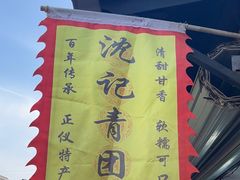 百年传承 正仪特产
沈记青团
清甜甘香 软糯可口